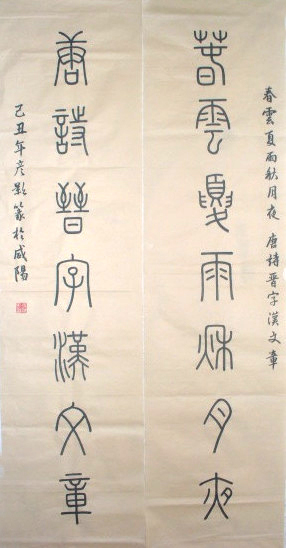 春雲夏雨秋月夜 唐詩晉字漢文章
春雲夏雨秋月夜
唐詩晉字漢文章
己丑年彦影篆於咸陽